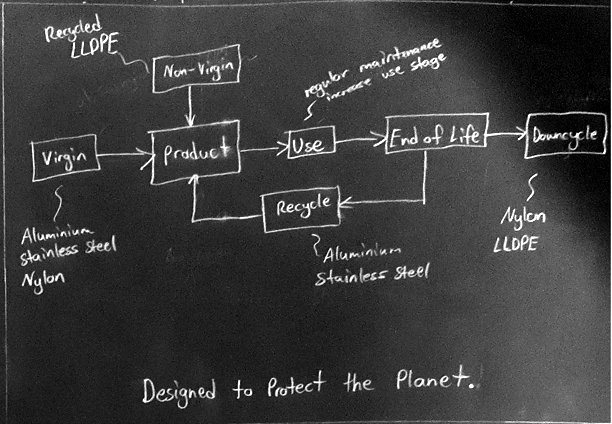 Recycled
LLDPE
Non-Virgin
regular maintenance
increase use stage
Virgin
Product
Use
End of Life
Downcycle
Recycle
Aluminium
stainless steel
Nylon
Aluminium
stainless steel
Nylon
LLDPE
Designed to Protect the Planet.